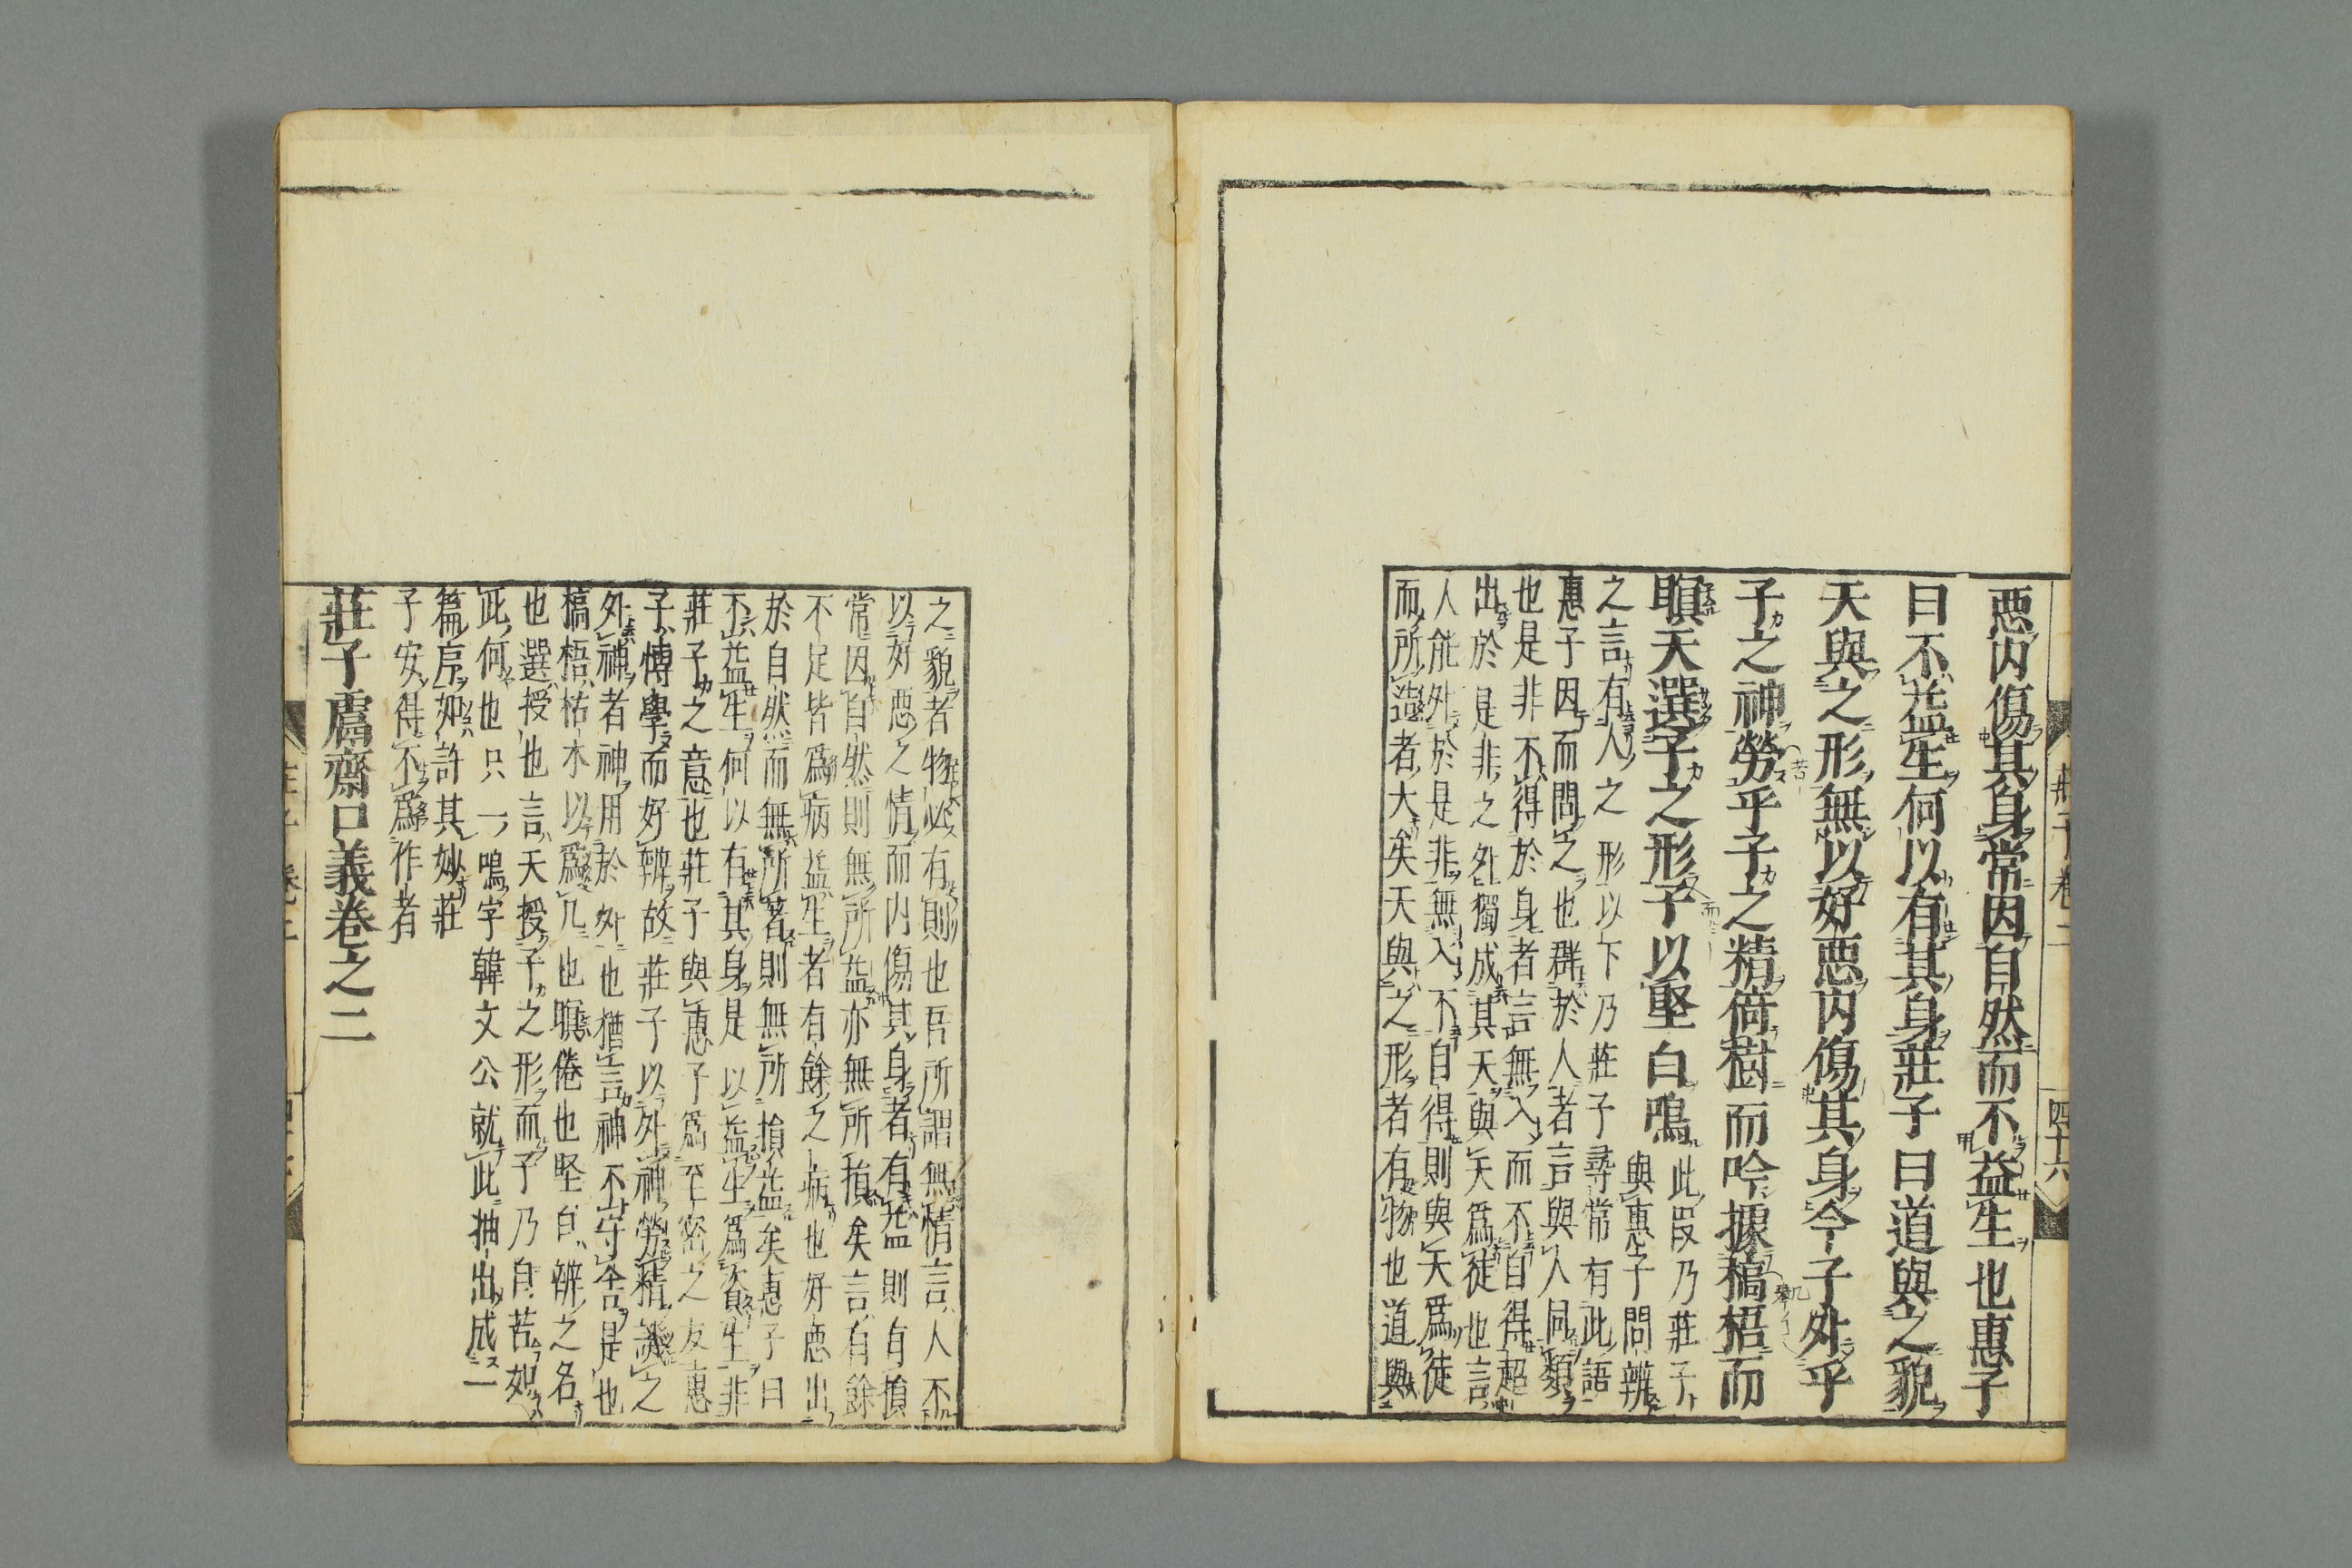 莊子卷二
四十六
惡内傷其身常因自然而不益生也惠子
曰不益生何以有其身莊子曰道與之貌
天與之形無以好惡内傷其身今子外乎
子之神勞乎子之精倚樹而吟據槁梧而
瞑天選子之形子以堅白鳴
此段乃莊子
與惠子問辨
之言有人之形以下乃莊子尋常有此語
惠子因而問之也群於人者言與人同類
也是非不得於身者言無入而不自得超
出於是非之外獨成其天與天爲徒也言
人能外於是非無入不自得則與天爲徒
而所造者大矣天與之形者有物也道與
之貌者物必有則也吾所謂無情言人不
以好惡之情而内傷其身者有益則有損
常因自然則無所益亦無所損矣言自餘
不足皆爲病益生者有餘之病也好惡出
於自然而無所著則無所損益矣惠子曰
不益生何以有其身是以益生爲資生非
莊子之意也莊子與惠子爲至密之友惠
子博學而好辨故莊子以外神勞精譏之
外神者神用於外也猶言神不守舍是也
槁梧枯木以爲几也瞑倦也堅白辨之名
也選授也言天授子之形而子乃自苦如
此何也只一鳴字韓文公就此抽出成一
篇序如許其妙莊
子安得不爲作者
莊子鬳齋口義卷之二